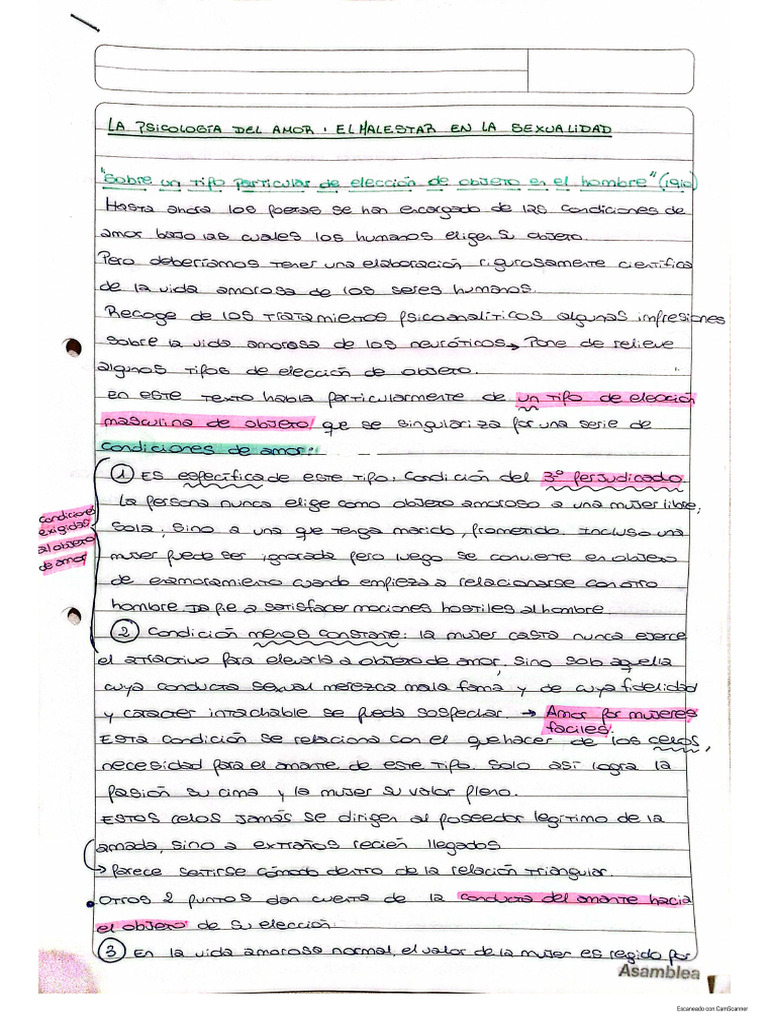 LA PSICOLOGÍA DEL AMOR. EL MALESTAR EN LA SEXUALIDAD
"Sobre un tipo particular de elección de objeto en el hombre" (1910)
Hasta ahora los poetas se han encargado de las condiciones de
amor bajo las cuales los humanos eligen su objeto.
Pero deberíamos tener una elaboración rigurosamente científica
de la vida amorosa de los seres humanos.
Recoge de los tratamientos psicoanalíticos algunas impresiones
sobre la vida amorosa de los neuróticos → Pone de relieve
algunos tipos de elección de objeto.
En este texto habla particularmente de un tipo de elección
masculina de objeto, que se singulariza por una serie de
condiciones de amor:
① Es específica de este tipo: Condición del 3º perjudicado.
La persona nunca elige como objeto amoroso a una mujer libre,
sola, sino a una que tenga marido, prometido. Incluso una
condiciones
exigidas
al objeto
de amor
mujer puede ser ignorada pero luego se convierte en objeto
de enamoramiento cuando empieza a relacionarse con otro
hombre. Da pie a satisfacer mociones hostiles al hombre
② Condición menos constante: la mujer casta nunca ejerce
el atractivo para elevarla a objeto de amor, sino solo aquella
cuya conducta sexual merezca mala fama y de cuya fidelidad
y carácter intachable se pueda sospechar. → Amor por mujeres
fáciles.
Esta condición se relaciona con el quehacer de los celos,
necesidad para el amante de este tipo. Solo así logra la
pasión su cima y la mujer su valor pleno.
Estos celos jamás se dirigen al poseedor legítimo de la
amada, sino a extraños recién llegados
→ Parece sentirse cómodo dentro de la relación triangular.
• Otros 2 puntos dan cuenta de la conducta del amante hacia
el objeto de su elección.
③ En la vida amorosa normal, el valor de la mujer es regido por
Asamblea
Escaneado con CamScanner